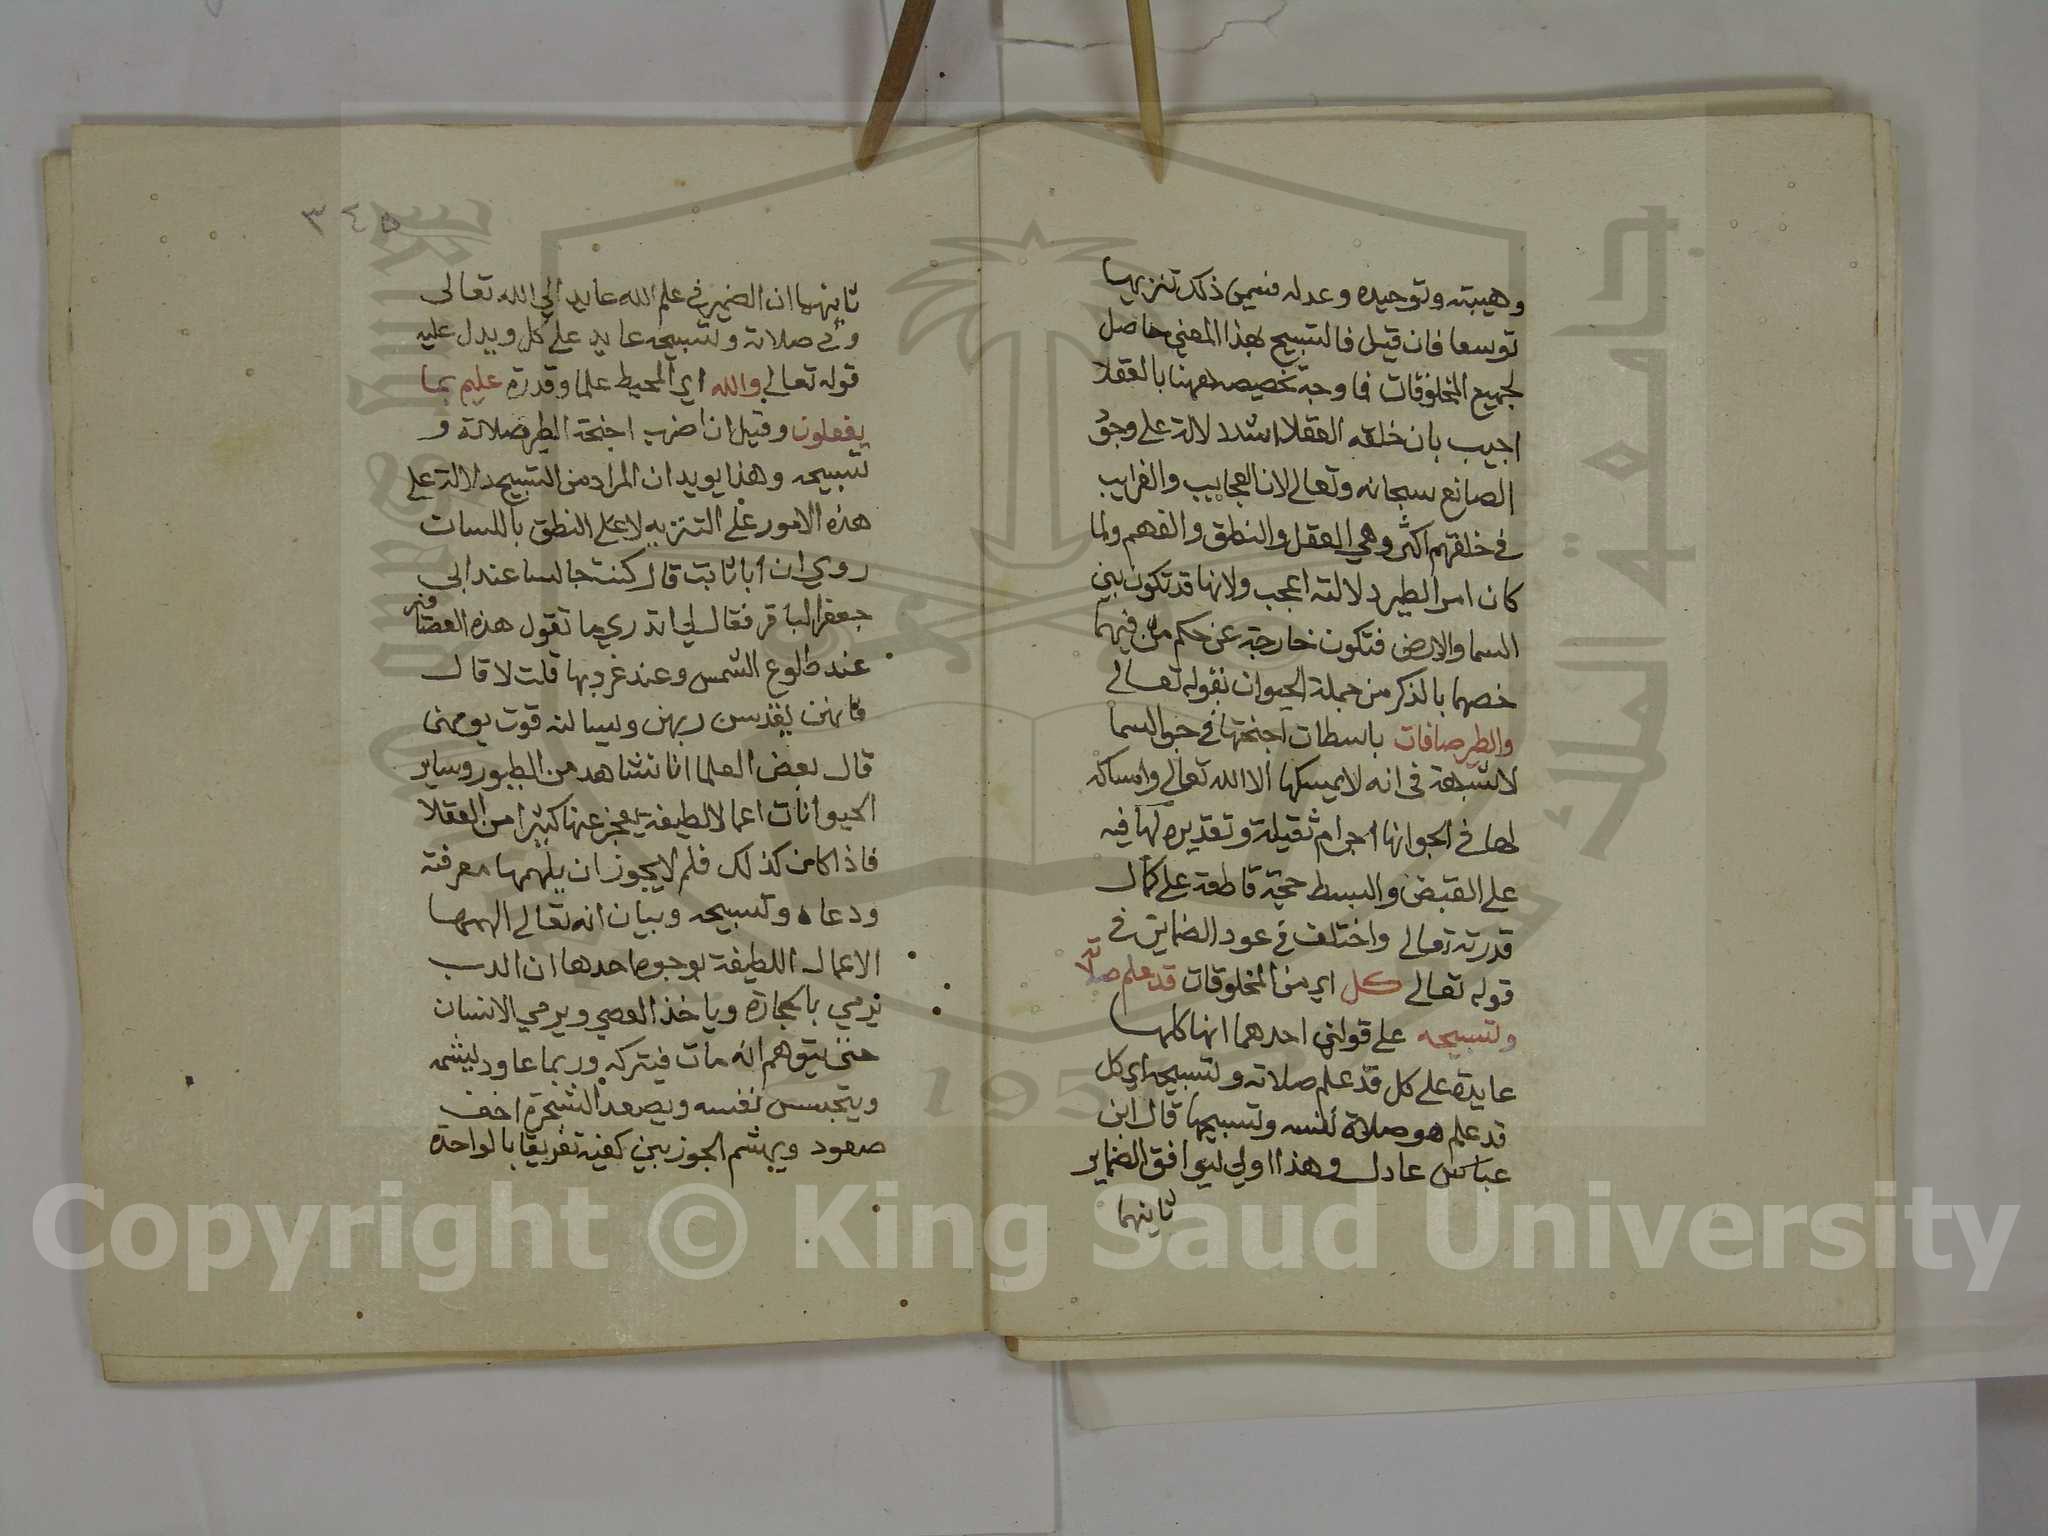 وهيبته وتوحيده وعدله فسمي ذلك تنزيها
توسعا فان قيل فالتسبيح بهذا المعني حاصل
لجميع المخلوقات فما وجه تخصيصه ههنا بالعقلا
اجيب بان خلقه العقلا اشد دلالة علي وجود
الصانع سبحانه وتعالي لان العجايب والغرايب
في خلقهم اكثر وهي العقل والنطق والفهم ولما
كان امر الطير دلالته اعجب ولانها قد تكون بين
السما والارض فتكون خارجة عن حكم من فيهما
خصهما بالذكر من جملة الحيوان بقوله تعالي
والطير صافات باسطات اجنحتها في جو السما
لاشبهة في انه لا يمسكها الا الله تعالي وامساكه
لها في الجو انها اجرام ثقيلة وتقديره لها فيه
علي القبض والبسط حجة قاطعة علي كمال
قدرته تعالي واختلف في عود الضماير في
قوله تعالي كل اي من المخلوقات قد علم صلاته
وتسبيحه علي قولين احدهما انها كلها
عايدة علي كل قد علم صلاته وتسبيحه اي كل
قد علم هو صلاة نفسه وتسبيحها قال ابن
عباس عادل وهذا اولي ليوافق الضماير
ثانيهما
٣٤٥
ثانيهما ان الضمير في علم الله عايد الي الله تعالي
وفي صلاته وتسبيحه عايد علي كل ويدل عليه
قوله تعالي والله اي المحيط علما وقدرة عليم بما
يفعلون وقيل ان اضرب اجنحة الطير صلاته و
تسبيحه وهذا يويد ان المراد من التسبيح دلالة علي
هذه الامور علي التنزيه لا علي النطق باللسان
روي ان ابا ثابت قال كنت جالسا عند ابي
جعفر الباقر فقال لي اتدري ما تقول هذه العصافير
عند طلوع الشمس وعند غروبها قلت لا قال
فانهن يقدسن ربهن ويسالنه قوت يومهن
قال بعض العلما انا نشاهد من الطيور وساير
الحيوانات اعمالا لطيفة يعجز عنها كثيرا من العقلا
فاذا كان كذلك فلم لا يجوز ان يلهمها معرفته
ودعاه وتسبيحه وبيان انه تعالي الهمها
الاعمال اللطيفة بوجوه احدها ان الدب
يرمي بالحجارة وياخذ العصي ويرمي الانسان
حتي يتوهم انه مات فيتركه وربما عاود ليشمه
ويتجسس نفسه ويصعد الشجرة اخف
صعود ويهشم الجوز بين كفيه تفريقا بالواحدة
Copyright © King Saud University